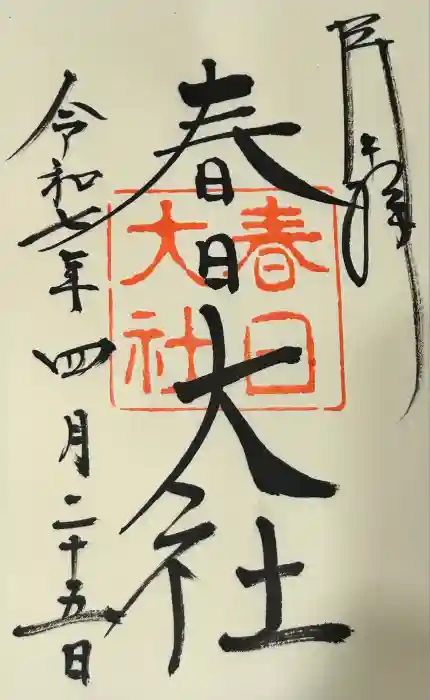 春日大社
春日
大社
令和七年四月二十五日